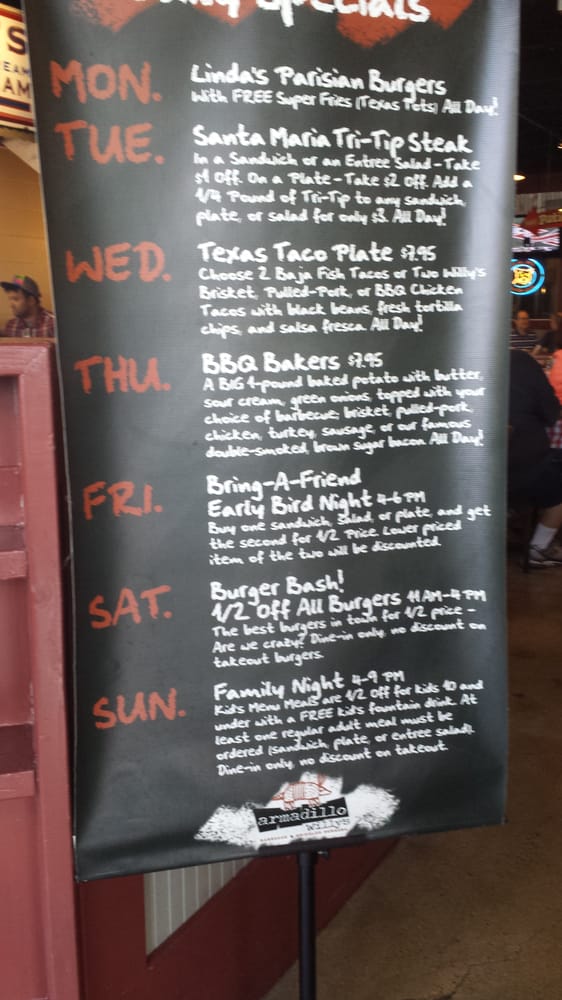 Specials
MON.
Linda's Parisian Burgers
With FREE Super Fries (Texas Tots) All Day!
TUE.
Santa Maria Tri-Tip Steak
In a Sandwich or an Entree Salad - Take
$1 Off. On a Plate - Take $2 Off. Add a
1/4 Pound of Tri-Tip to any sandwich,
plate, or salad for only $3. All Day!
WED.
Texas Taco Plate $7.95
Choose 2 Baja Fish Tacos or Two Willy's
Brisket, Pulled-Pork, or BBQ Chicken
Tacos with black beans, fresh tortilla
chips, and salsa fresca. All Day!
THU.
BBQ Bakers $7.95
A BIG 1-pound baked potato with butter,
sour cream, green onions, topped with your
choice of barbecue: brisket, pulled-pork,
chicken, turkey, sausage, or our famous
double-smoked, brown sugar bacon. All Day!
FRI.
Bring-A-Friend
Early Bird Night 4-6 PM
Buy one sandwich, salad, or plate, and get
the second for 1/2 Price. Lower priced
item of the two will be discounted.
SAT.
Burger Bash!
1/2 Off All Burgers 11 AM-4 PM
The best burgers in town for 1/2 price -
Are we crazy? Dine-in only, no discount on
takeout burgers.
SUN.
Family Night 4-9 PM
Kid's Menu Meals are 1/2 Off for kids 10 and
under with a FREE kid's fountain drink. At
least one regular adult meal must be
ordered (sandwich, plate, or entree salad).
Dine-in only, no discount on takeout.
armadillo
willy's